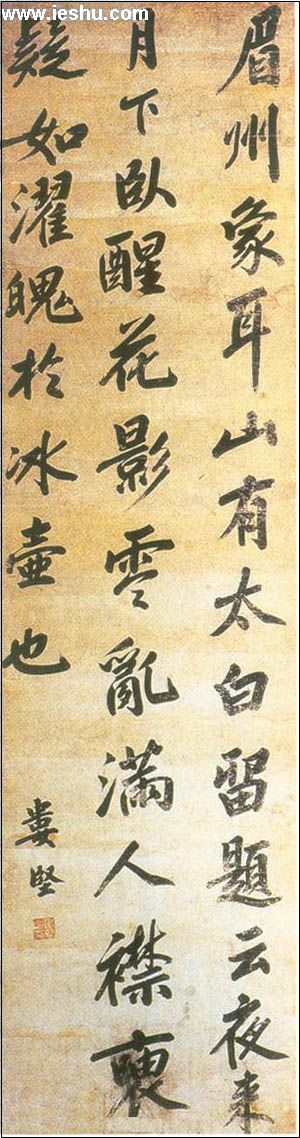 www.ieshu.com
眉州象耳山有太白留題云夜来
月下臥醒花影零亂滿人襟
疑如濯魄於冰壺也
婁堅